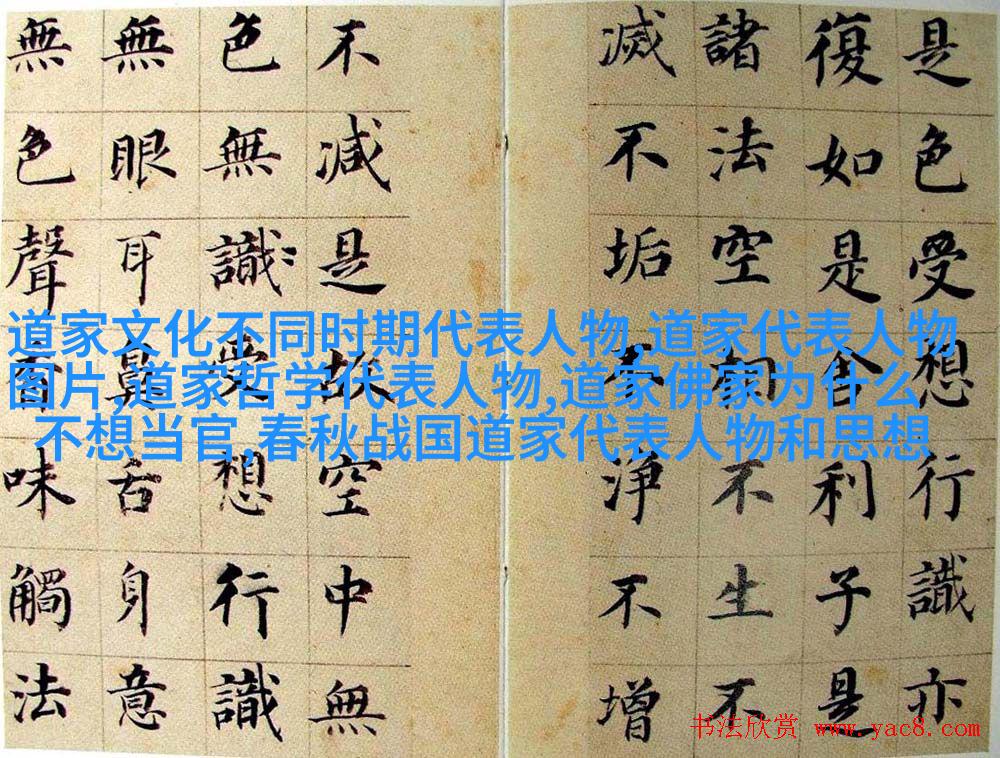 是色受想行識亦
復如是舍利子是
諸法空相不生不
滅不垢不淨不增
不減是故空中無
色無識受想行識
無眼耳鼻舌身意
無色聲香味觸法
道家文化不同时期代表人物,道家代表人物
图片,道家哲学代表人物,道家佛家为什么
不想当官,春秋战国道家代表人物和思想
书法欣赏 www.yac8.com